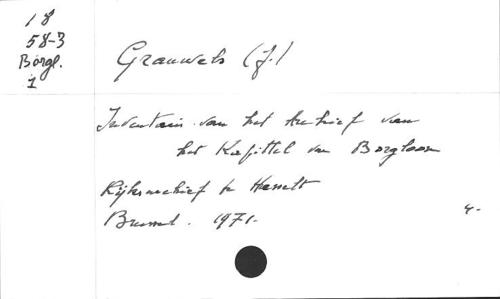 18
58-3
Borgl.
1
Grauwels (J.)
Inventaris van het Archief van
het Kapittel van Borgloon
Rijksarchief te Hasselt
Brussel. 1971.
4.-